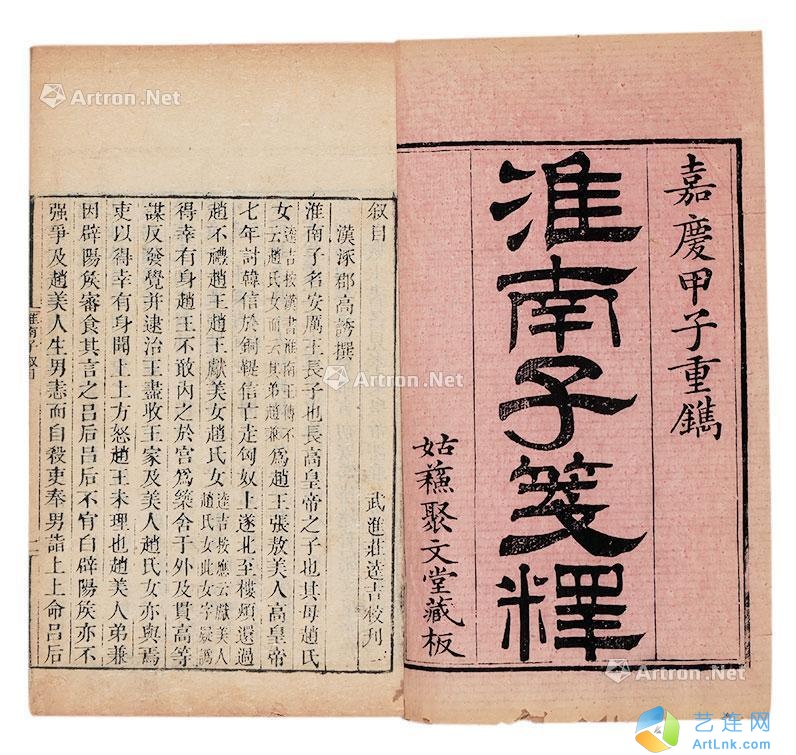 嘉慶甲子重鐫
淮南子箋釋
姑蘓聚文堂藏板
叙目
武進莊逵吉校刊
一
漢涿郡高誘撰
淮南子名安厲王長子也長高皇帝之子也其母趙氏
女逵吉按漢書淮南王傳不云趙氏女而云其弟趙兼爲趙王張敖美人高皇帝
七年討韓信於銅鞮信亡走匈奴上遂北至樓煩還過
趙不禮趙王趙王獻美女趙氏女逵吉按應云獻美人趙氏女此女字疑譌
得幸有身趙王不敢内之於宮爲築舍于外及貫高等
謀反發覺并逮治王盡收王家及美人趙氏女亦與焉
吏以得幸有身聞上上方怒趙王未理也趙美人弟兼
因辟陽侯審食其言之呂后呂后不肎白辟陽侯亦不
强爭及趙美人生男恚而自殺吏奉男詣上上命呂后
淮南子叙目
Artron.Net
Artron.Net
Artron.Net
Artron.Net
Artron.Net
艺连网
ArtLnk.com